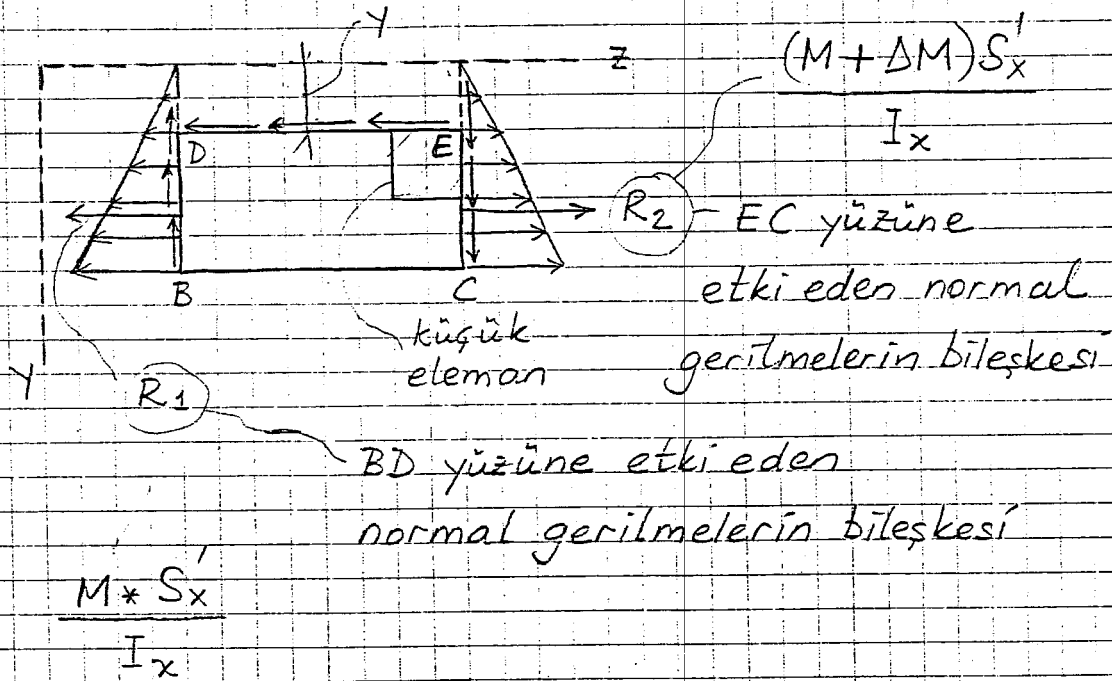 y
z
(M + ΔM) Sx'
Ix
D
E
R2
EC yüzüne
etki eden normal
gerilmelerin bileşkesi
B
C
küçük
eleman
y
R1
BD yüzüne etki eden
normal gerilmelerin bileşkesi
M * Sx'
Ix